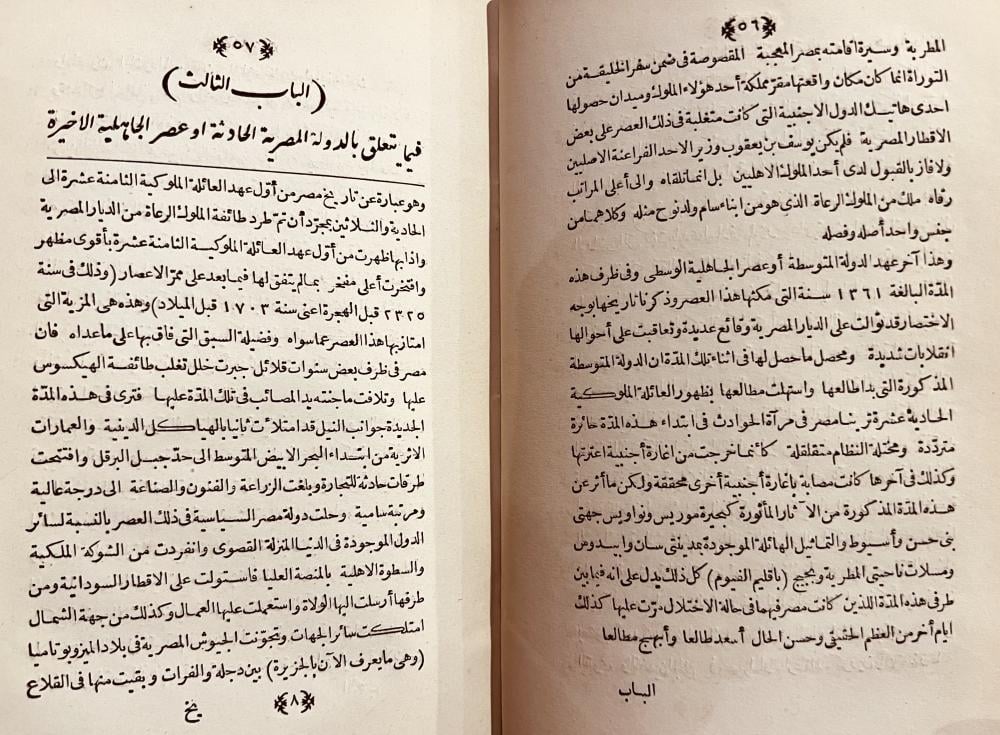 ٥٦
المطرية وسيرة اقامته بمصر المعجبية المقصوصة فى ضمن سفر الخليقة من
التوراة انما كان مكان واقعتها مقرّ مملكة أحد هؤلاء الملوك وميدان حصولها
احدى هاتيك الدول الاجنبية التى كانت متغلبة فى ذلك العصر على بعض
الاقطار المصرية فلم يكن يوسف بن يعقوب وزير الاحد الفراعنة الاصليين
ولا فاز بالقبول لدى أحد الملوك الاهليين بل انما تلقاه والى أعلى المراتب
رقاه ملك من الملوك الرعاة الذى هو من ابناء سام ولد نوح مثله وكلاهما من
جنس واحد أصله وفصله
وهذا آخر عهد الدولة المتوسطة أو عصر الجاهلية الوسطى وفى ظرف هذه
المدّة البالغة ١٣٦١ سنة التى مكثها هذا العصر وذكرنا تاريخها بوجه
الاختصار قد توالت على الديار المصرية وقائع عديدة وتعاقبت على أحوالها
انقلابات شديدة ومحصل ما حصل لها فى اثناء تلك المدّة ان الدولة المتوسطة
المذكورة التى بدا طالعها واستهلت مطالعها بظهور العائلة الملوكية
الحادية عشرة ترينا مصر فى مرآة الحوادث فى ابتداء هذه المدّة حائرة
متردّدة ومختلة النظام متقلقلة كأنما خرجت من اغارة أجنبية اعترتها
وكذلك فى آخرها كانت مصابة باغارة أجنبية أخرى محققة ولكن ما أثر عن
هذه المدّة المذكورة من الآثار المأثورة كبحيرة موريس ونواويس جهتى
بنى حسن وأسيوط والتماثيل الهائلة الموجودة بمدينتى سان وابيدوس
ومسلات ناحيتى المطرية وبجيج (باقليم الفيوم) كل ذلك يدل على انه فيما بين
طرفى هذه المدّة اللذين كانت مصر فيهما فى حالة الاختلال مرّت عليها كذلك
ايام أخر من العظم الحقيقى وحسن الحال أسعد طالعا وأبهج مطالعا
الباب
٥٧
(الباب الثالث)
فيما يتعلق بالدولة المصرية الحادثة او عصر الجاهلية الاخيرة
وهو عبارة عن تاريخ مصر من أوّل عهد العائلة الملوكية الثامنة عشرة الى
الحادية والثلاثين بمجرّد أن تمّ طرد طائفة الملوك الرعاة من الديار المصرية
واذا بها ظهرت من أوّل عهد العائلة الملوكية الثامنة عشرة بأقوى مظهر
وافتخرت أعلى مفخر بما لم يتفق لها فيما بعد على ممرّ الاعصار (وذلك فى سنة
٢٣٢٥ قبل الهجرة اعنى سنة ١٧٠٣ قبل الميلاد) وهذه هى المزية التى
امتاز بها هذا العصر عما سواه وفضيلة السبق التى فاق بها على ما عداه فان
مصر فى ظرف بعض سنوات قلائل جبرت خلل تغلب طائفة الهيكسوس
عليها وتلافت ما جنته يد المصائب فى تلك المدّة عليها فترى فى هذه المدّة
الجديدة جوانب النيل قد امتلأت ثانيا بالهياكل الدينية والعمارات
الاثرية من ابتداء البحر الابيض المتوسط الى حدّ جبل البرقل وافتتحت
طرقات حادثة للتجارة وبلغت الزراعة والفنون والصناعة الى درجة عالية
ومرتبة سامية وحلت دولة مصر السياسية فى ذلك العصر بالنسبة لسائر
الدول الموجودة فى الدنيا المنزلة القصوى وانفردت من الشوكة الملكية
والسطوة الاهلية بالمنصة العليا فاستولت على الاقطار السودانية ومن
طرفها أرسلت اليها الولاة واستعملت عليها العمال وكذلك من جهة الشمال
امتلكت سائر الجهات وتجوّنت الجيوش المصرية فى بلاد الميزوبوتاميا
(وهى ما يعرف الآن بالجزيرة) بين دجلة والفرات وبقيت منها فى القلاع
٨
يخ